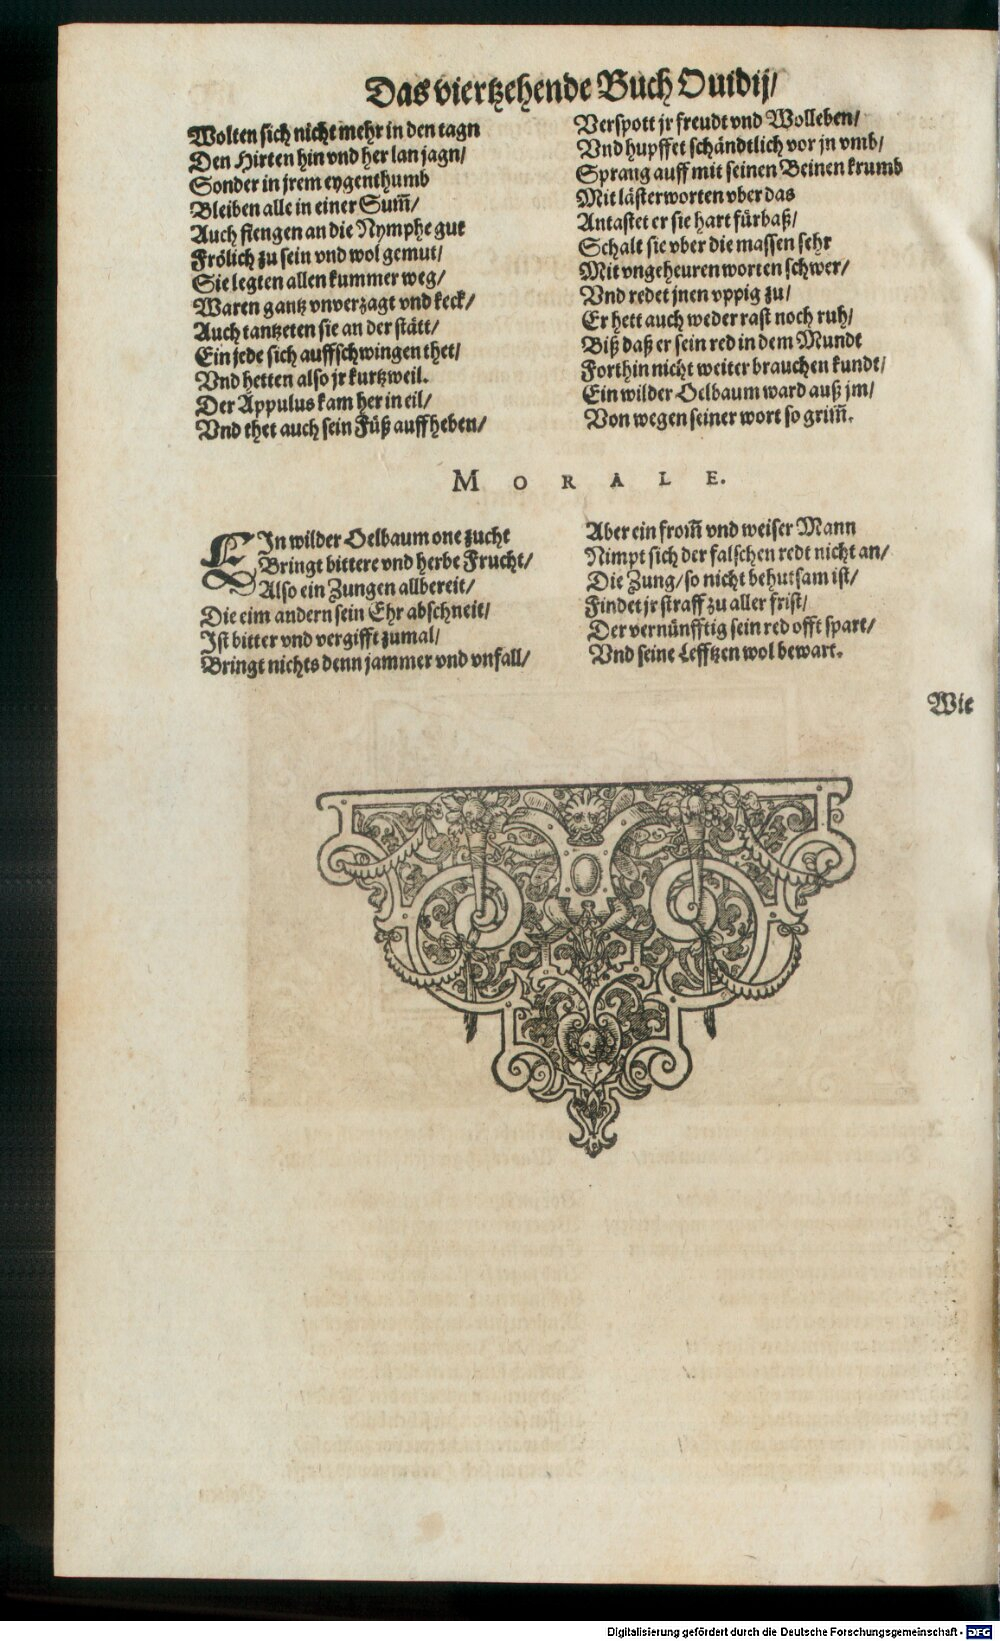 Das viertzehende Buch Ouidij/
Wolten sich nicht mehr in den tagn
Den Hirten hin vnd her lan jagn/
Sonder in jrem eygenthumb
Bleiben alle in einer Sum̄/
Auch fiengen an die Nymphe gut
Frölich zu sein vnd wol gemut/
Sie legten allen kummer weg/
Waren gantz vnverzagt vnd keck/
Auch tantzeten sie an der stätt/
Ein jede sich auffschwingen thet/
Vnd hetten also jr kurtzweil.
Der Appulus kam her in eil/
Vnd thet auch sein Füß auffheben/
Verspott jr freudt vnd Wolleben/
Vnd hupffet schändtlich vor jn vmb/
Sprang auff mit seinen Beinen krumb
Mit lästerworten vber das
Antastet er sie hart fürbaß/
Schalt sie vber die massen sehr
Mit vngeheuren worten schwer/
Vnd redet jnen vppig zu/
Er hett auch weder rast noch ruh/
Biß daß er sein red in dem Mundt
Forthin nicht weiter brauchen kundt/
Ein wilder Oelbaum ward auß jm/
Von wegen seiner wort so grim̄.
MORALE.
EIn wilder Oelbaum one zucht
Bringt bittere vnd herbe Frucht/
Also ein Zungen allbereit/
Die eim andern sein Ehr abschneit/
Ist bitter vnd vergifft zumal/
Bringt nichts denn jammer vnd vnfall/
Aber ein from̄ vnd weiser Mann
Nimpt sich der falschen redt nicht an/
Die Zung/ so nicht behutsam ist/
Findet jr straff zu aller frist/
Der vernünfftig sein red offt spart/
Vnd seine Lefftzen wol bewart.
Wie
Digitalisierung gefördert durch die Deutsche Forschungsgemeinschaft - DFG